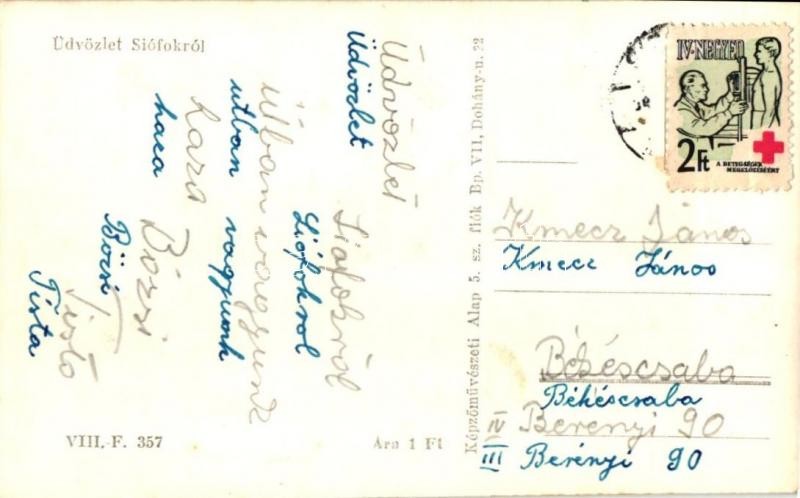 Üdvözlet Siófokról
Üdvözlet
Üdvözlet
Siófokról
Siófokrol
útban vagyunk
utban vagyunk
haza
haza
Bözsi
Bözsi
Tista
Tista
VIII.-F. 357
Ára 1 Ft
Képzőművészeti Alap 5. sz. fiók Bp. VII, Dohány-u. 22
IV-NEGYED
2 Ft
A BETEGSÉGEK
MEGELŐZÉSÉÉRT
Kmecz János
Kmecz János
Békéscsaba
Békéscsaba
IV Berényi 90
III Berényi 90